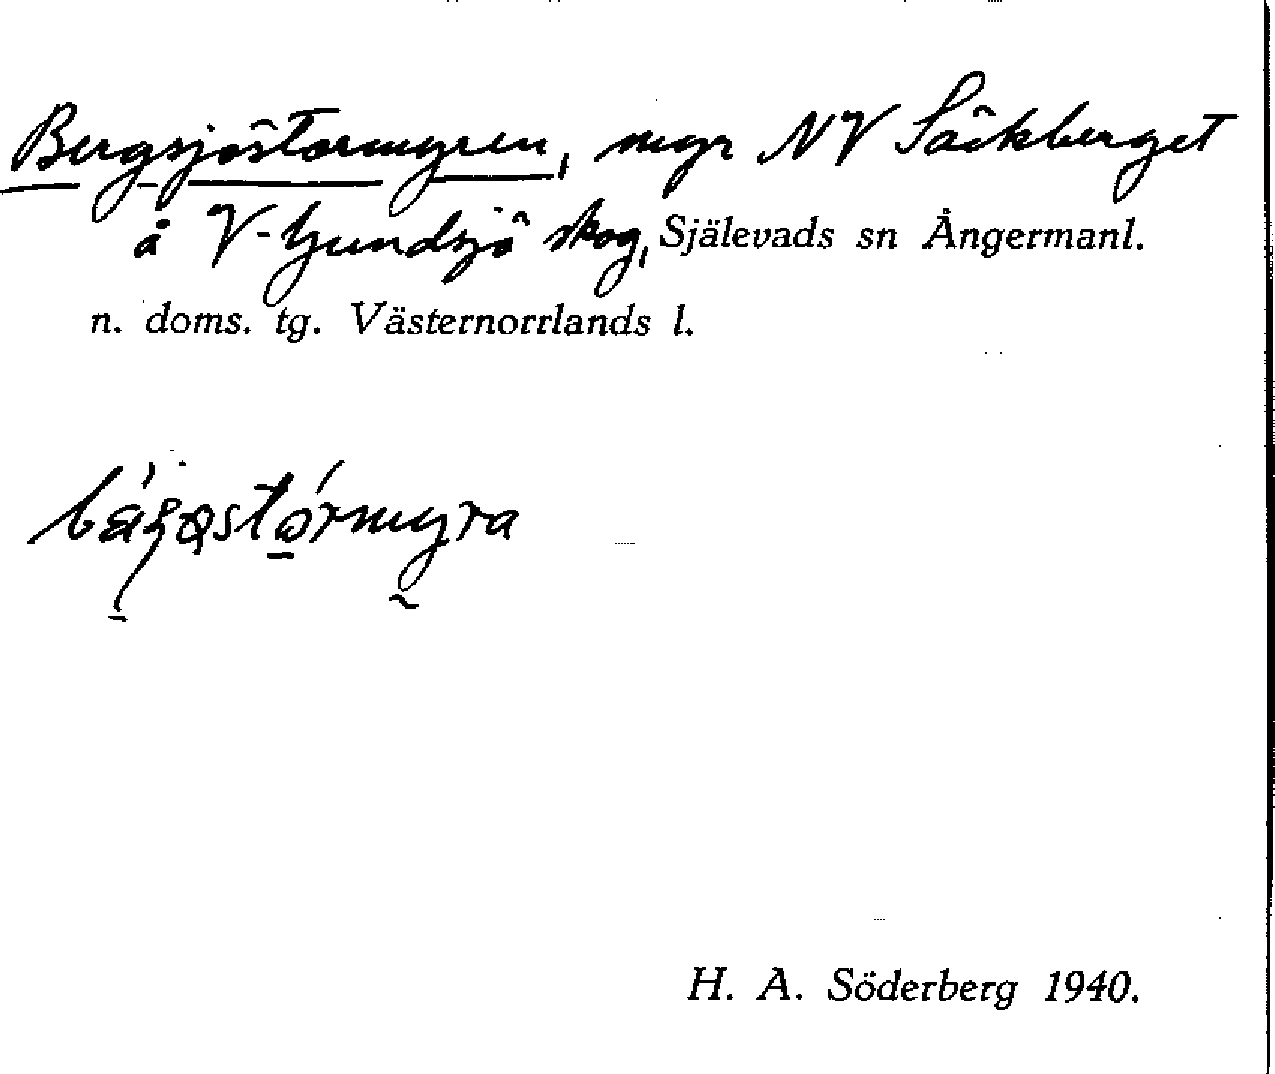 Bergsjöstormyren, myr NV Säckberget
å V-Gundsjö skog, Själevads sn Ångermanl.
n. doms. tg. Västernorrlands l.
H. A. Söderberg 1940.